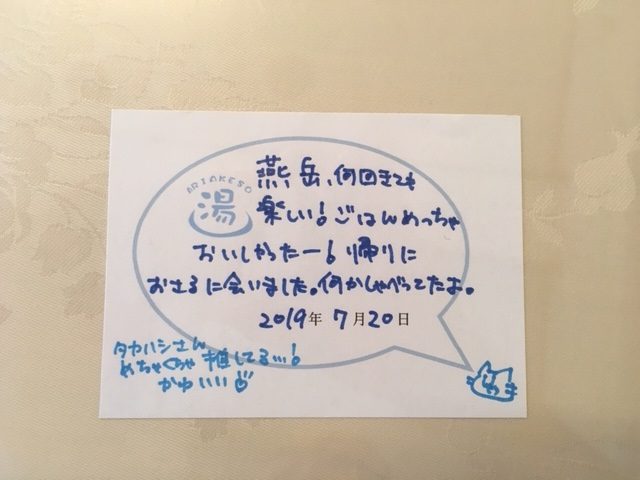 ARIAKESO
湯
燕岳、何回きても
楽しい!ごはんめっちゃ
おいしかったー!帰りに
おさるに会いました。何かしゃべってたよ。
2019年 7月20日
タカハシさん
めちゃくちゃ推してる…!
かわいい♡